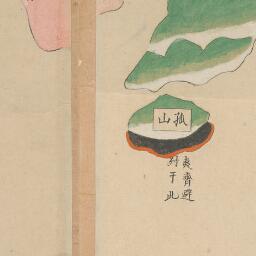 孤山
夷齊避
紂于此